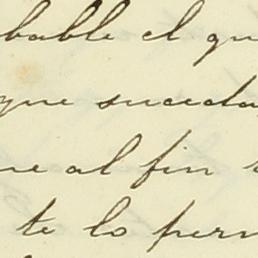 bable el qu
que suceda
ue al fin
te lo perm